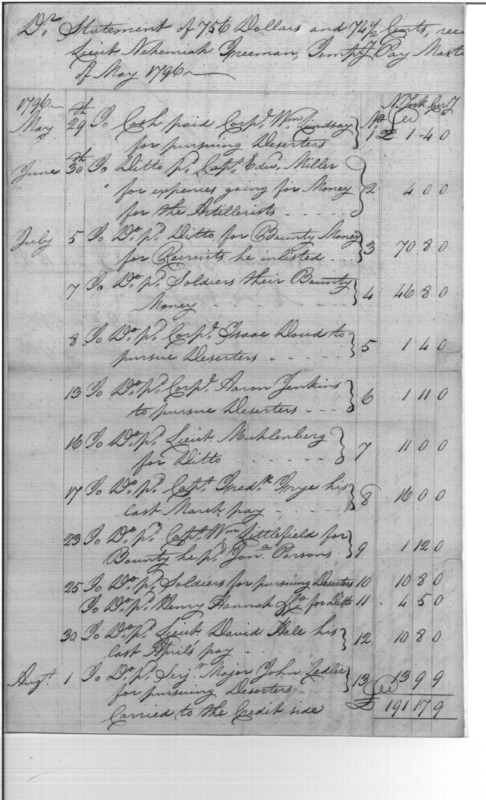 Dr Statement of 756 Dollars and 74 1/2 Cents, rece
Lieut Nehemiah Freeman, Pay Maste
of May 1796
1796 N York Curcy
May 29th To Cash paid Corpl Wm Lindsay
for pursuing Deserters } No 1 £ 1 4 0
June 30th To Ditto pd Capt Edwd Miller
for expences going for Money
for the Artillerists } 2 4 0 0
July 5 To Do pd Ditto for Bounty Money
for Recruits he enlisted } 3 70 8 0
7 To Do pd Soldiers their Bounty
Money } 4 46 8 0
8 To Do pd Corpl Isaac Doud to
pursue Deserters } 5 1 4 0
13 To Do pd Corpl Aaron Jenkins
to pursue Deserters } 6 1 11 0
16 To Do pd Lieut Muhlenberg
for Ditto } 7 11 0 0
17 To Do pd Capt Fredk Frye his
last March pay } 8 16 0 0
23 To Do pd Capt Wm Littlefield for
Bounty he pd Jona Parsons } 9 1 12 0
25 To Do pd Soldiers for pursuing Deserters 10 10 8 0
To Do pd Henry Hannah for Ditto 11 4 5 0
30 To Do pd Lieut David Hale his
last Aprils pay } 12 10 8 0
Augt 1 To Do pd Serjt Major John Ledlie
for pursuing Deserters } 13 13 9 9
Carried to the Credit side £ 191 17 9